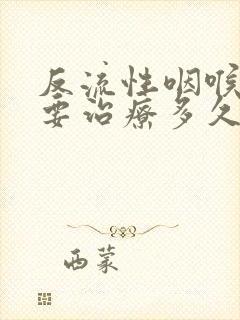 反流性咽喉
要治疗多久
西蒙